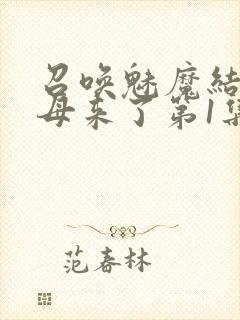 召唤魅魔结
母来了第1集
范春林